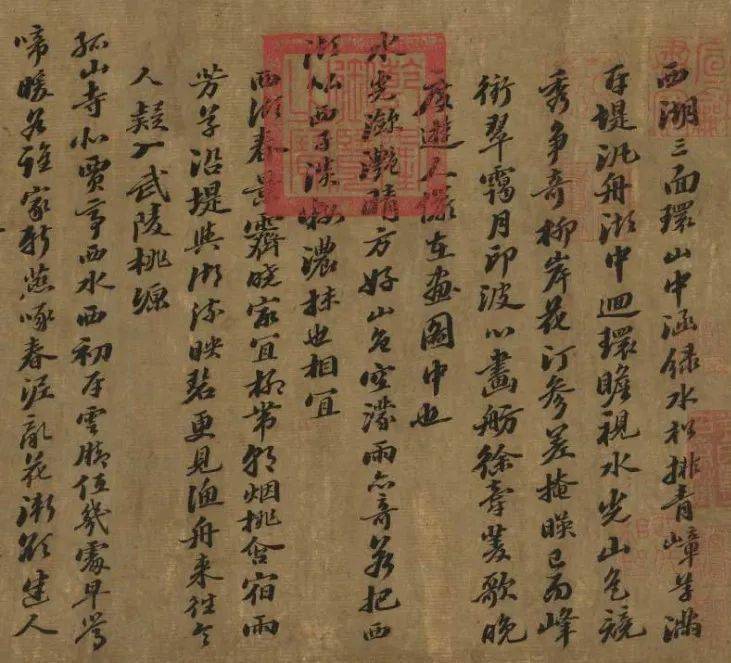 西湖三面環山中涵緑水松排青嶂草滿
平堤汎舟湖中迴環瞻視水光山色競
秀争奇柳岸花汀参差掩暎已而峰
銜翠靄月印波心畫舫徐牽菱歌晚
度遊人儼在畫圖中也
水光瀲灧晴方好山色空濛雨亦奇若把西
湖比西子淡粧濃抹也相宜
西湖春景霽曉冣宜柳帶朝烟桃含宿雨
芳草沿堤與湖流映碧更見漁舟来往令
人疑入武陵桃塢
孤山寺北賈亭西水面初平雲脚低幾處早鶯
啼暖樹誰家新燕啄春泥亂花漸欲迷人
乾隆御覽之寶